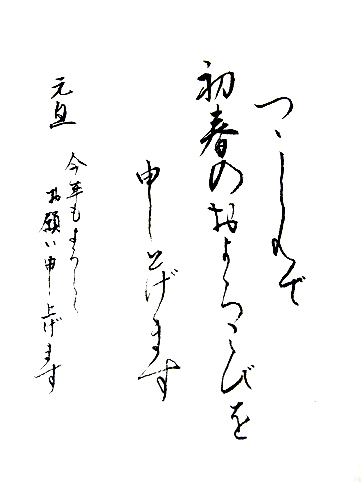 つゝしんで
初春のおよろこびを
申し上げます
今年もよろしく
お願い申し上げます
元旦